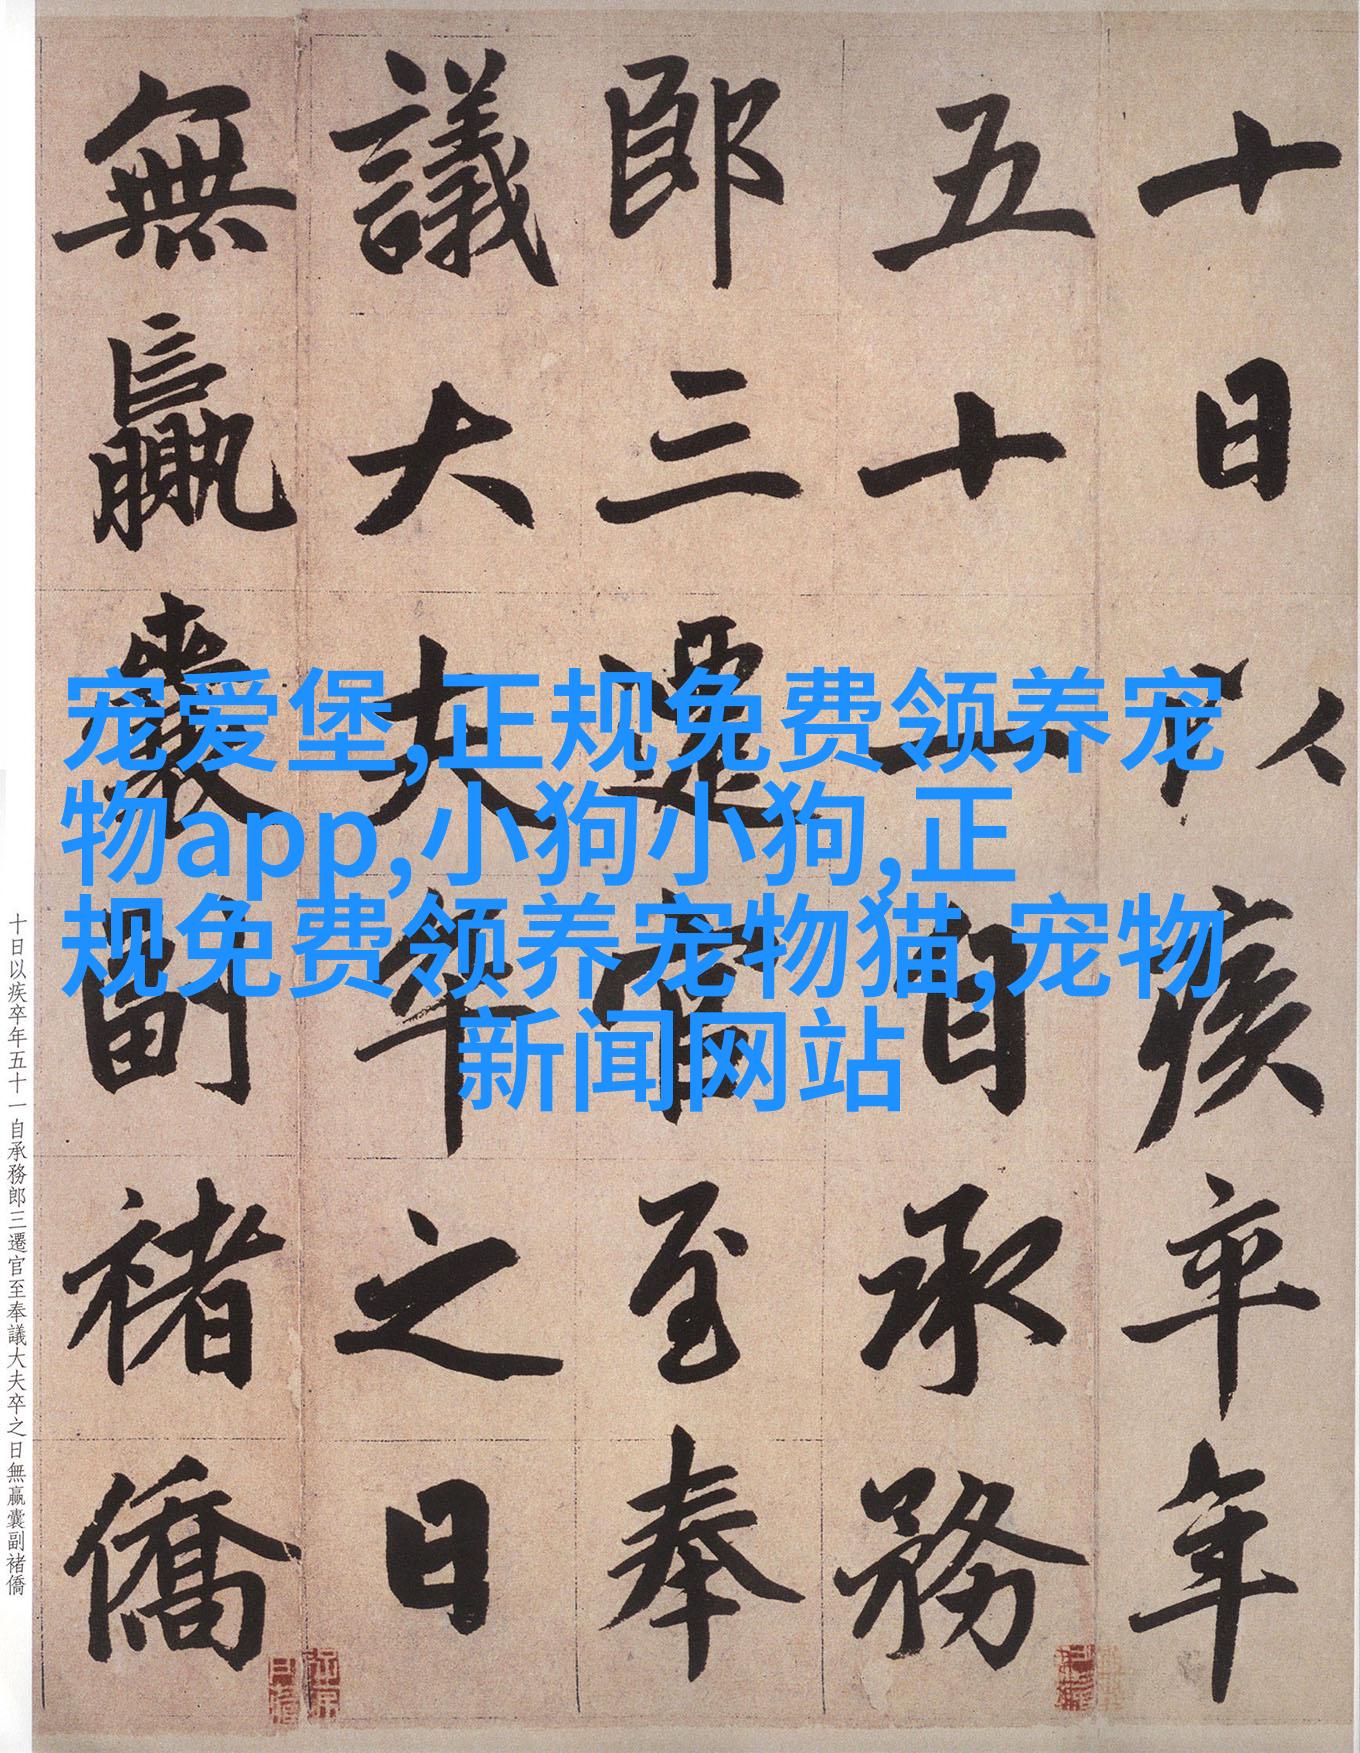 十日以疾卒年
五十一自承務
郎三遷官至奉
議大夫卒之日
無贏囊副褚僑
宠爱堡,正规免费领养宠
物app,小狗小狗,正
规免费领养宠物猫,宠物
新闻网站
十日以疾卒年五十一自承務郎三遷官至奉議大夫卒之日無贏囊副褚僑